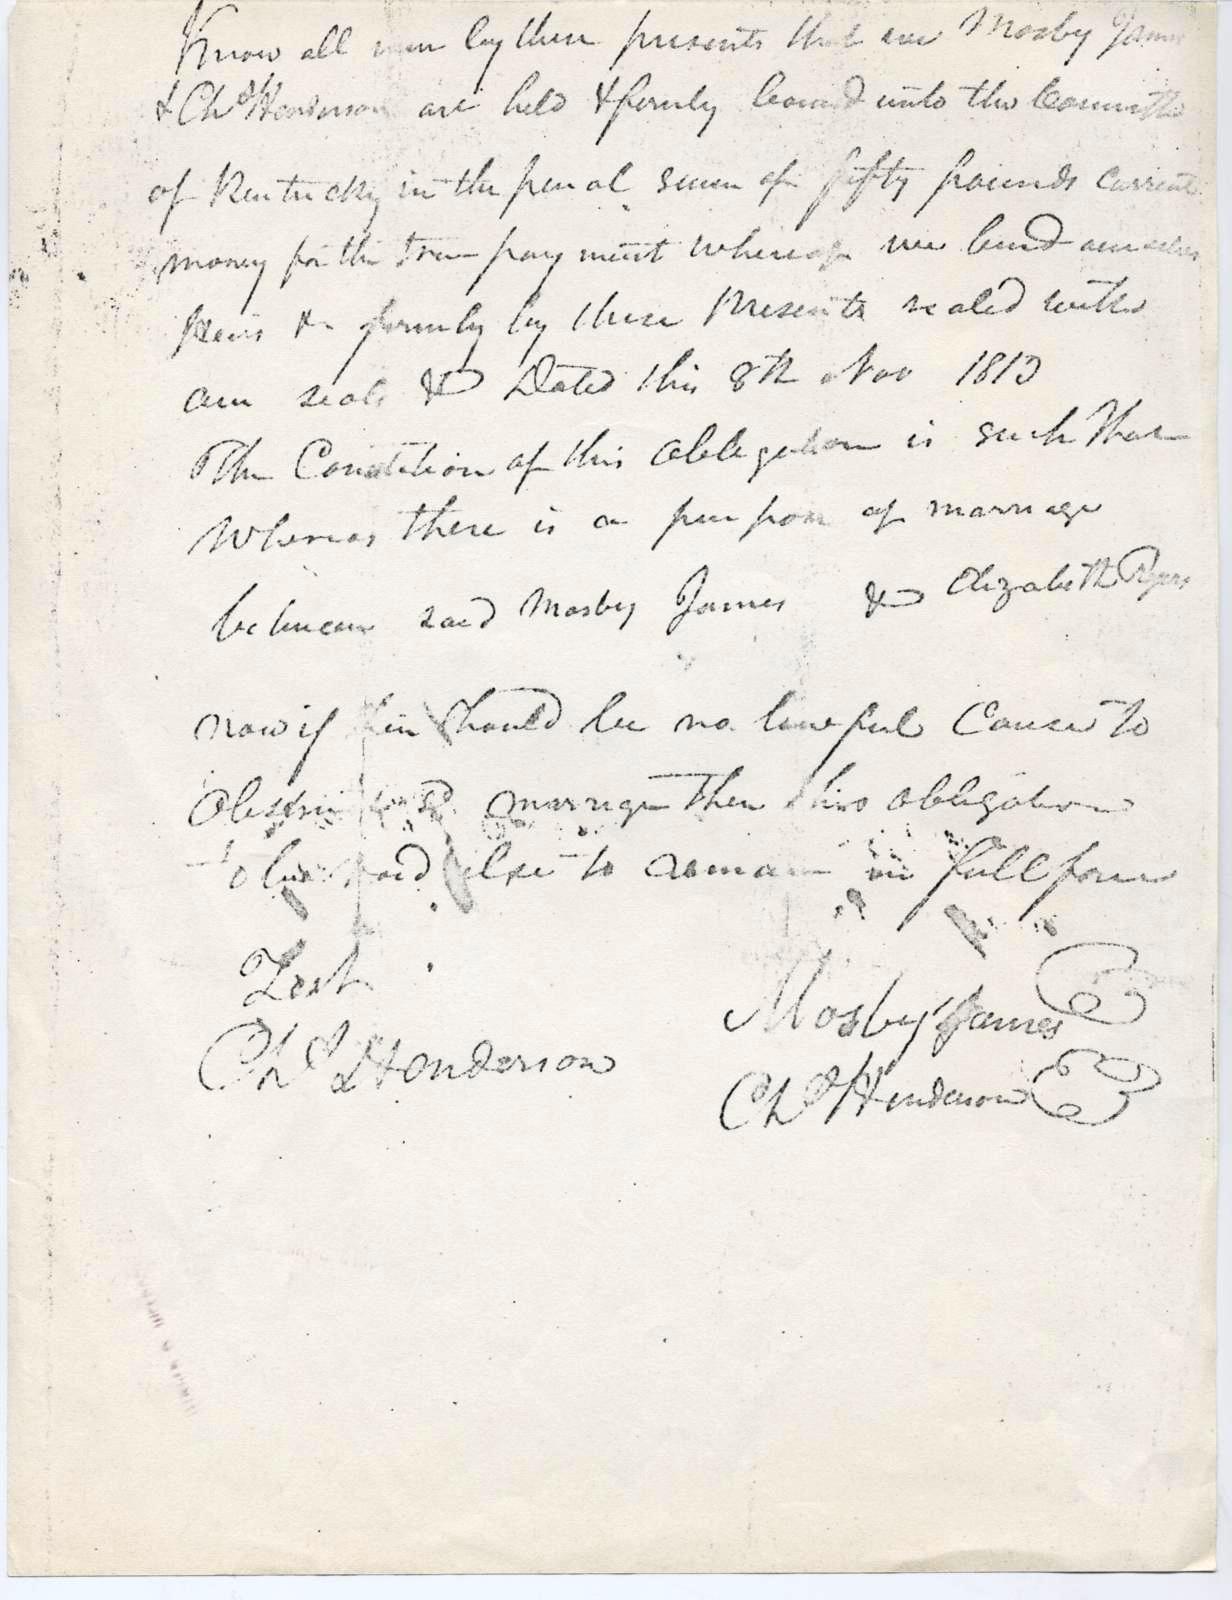 Know all men by these presents that we Mosby James
& Chs Henderson are held & firmly bound unto the
of Kentucky in the penal sum of fifty pounds current
money for the true payment whereof we bind ourselves
heirs &c firmly by these Presents sealed with
our seals & Dated this 8th Nov 1813
The Condition of this obligation is such that
Whereas there is a purpose of marriage
between said Mosby James & Elizabeth
now if should be no lawful Cause to
Obstruct sd. marriage then this obligation
to be void else to remain in full force
Test
Chs Henderson
Mosby James
Chs Henderson